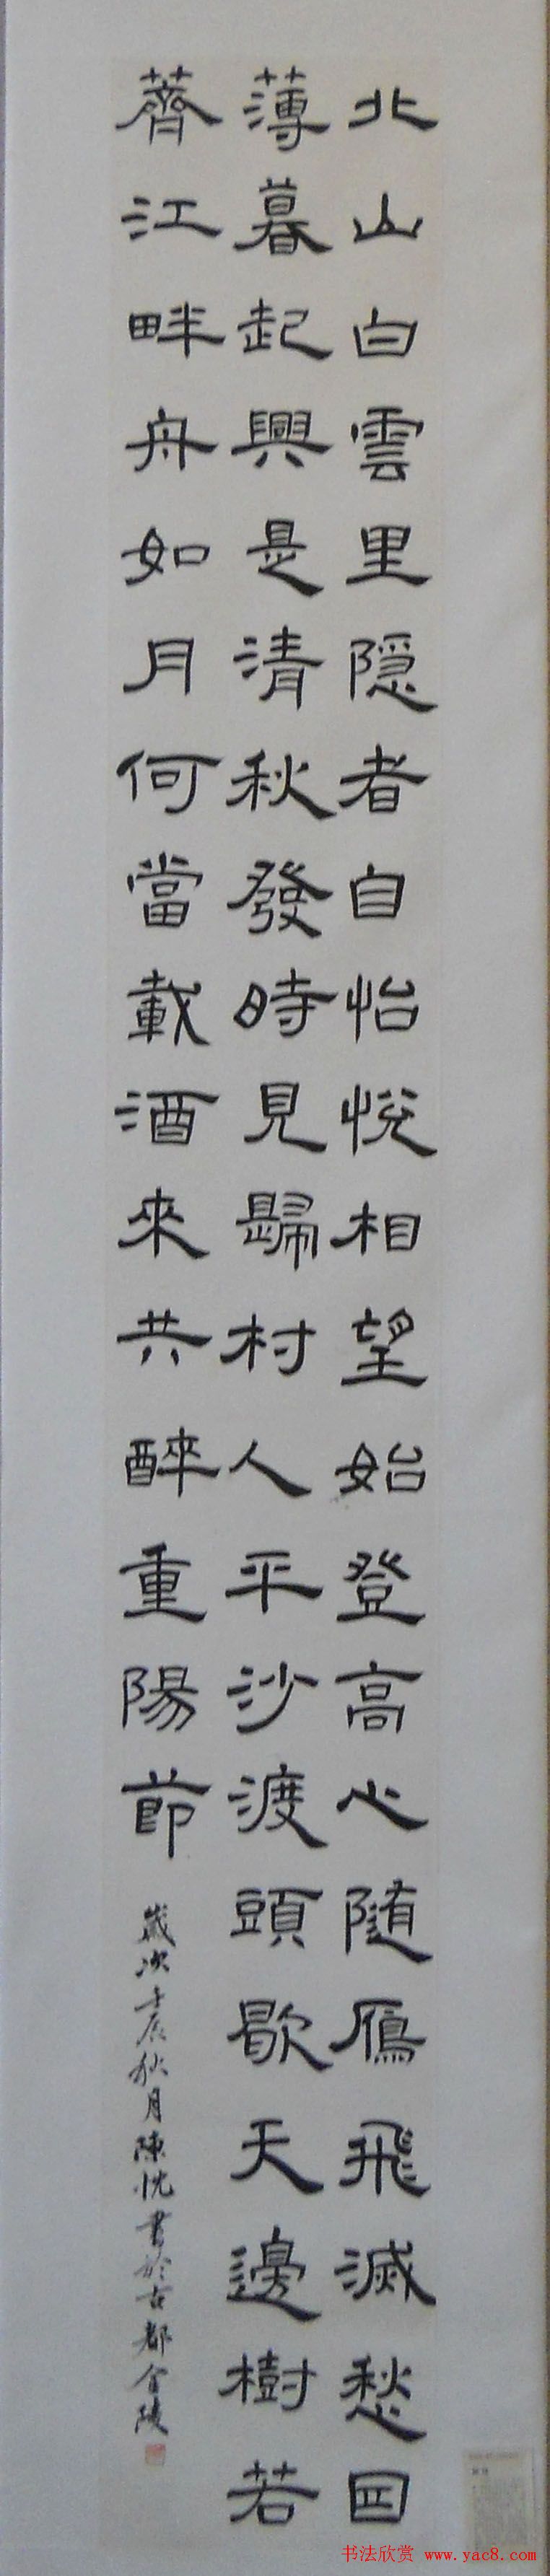 北山白雲里隐者自怡悅相望始登高心随鴈飛滅愁囙
薄暮起興是清秋發時見歸村人平沙渡頭歇天邊樹若
薺江畔舟如月何當載酒來共醉重陽節
歲次壬辰秋月陳書於古都金陵
书法欣赏 www.yac8.com